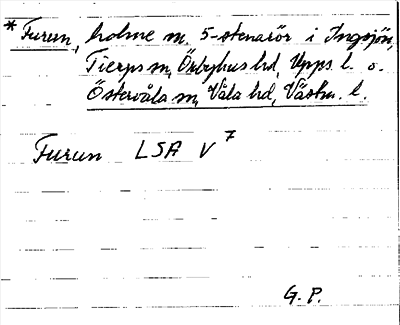 * Furun, holme m. 5-stenarör i Ingsjön,
Tierps sn, Örbyhus hd, Upps. l. o.
Östervåla sn, Våla hd, Västm. l.
Furun LSA V 7
G. P.